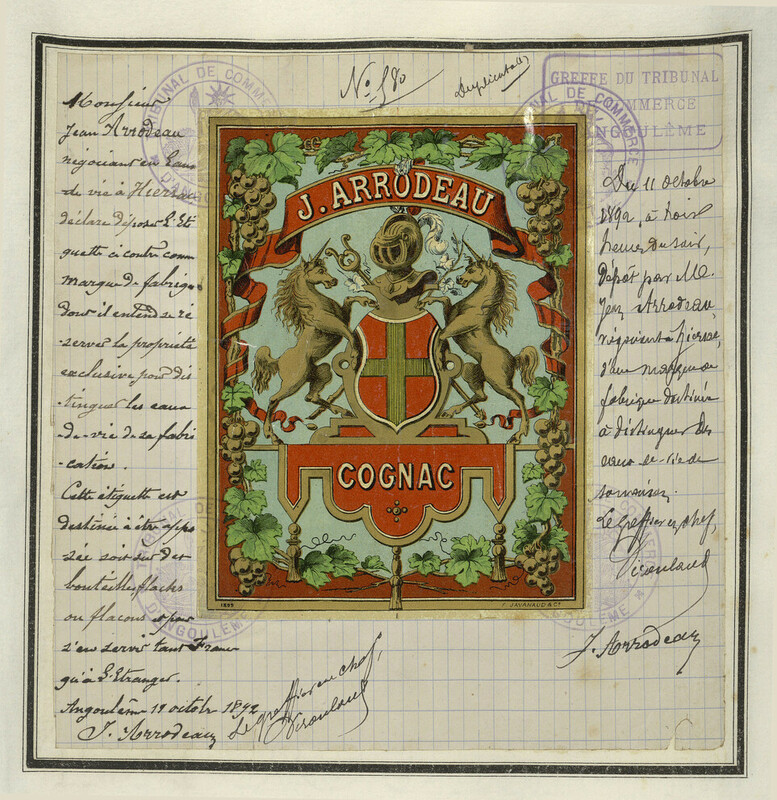 No. 580
Duplicata
GREFFE DU TRIBUNAL
COMMERCE
ANGOULÊME
TRIBUNAL DE COMMERCE
Monsieur
Jean Arrodeau
négociant en Eaux
de vie à Hiersac
déclare déposer l'Eti
quette ci contre comme
marque de fabrique
dont il entend se ré
server la propriété
exclusive pour dis
tinguer les eaux
de-vie de sa fabri
cation.
Cette étiquette est
destinée à être appo
sée soit sur des
bouteilles,
ou flacons et pour
s'en servir tant France
qu'à l'Etranger.
Angoulême 11 octobr 1892
J. Arrodeau
J. ARRODEAU
COGNAC
1299
F. JAVANAUD & Cie
Le greffier en chef,
Du 11 Octobre
1892, à trois
heures du soir,
Dépôt par M.
Jean Arrodeau,
négociant à Hiersac,
d'une marque de
fabrique destinée
à distinguer les
eaux-de-vie de
sa maison.
Le greffier en chef,
J. Arrodeau
TRIBUNAL DE COMMERCE
D'ANGOULÊME